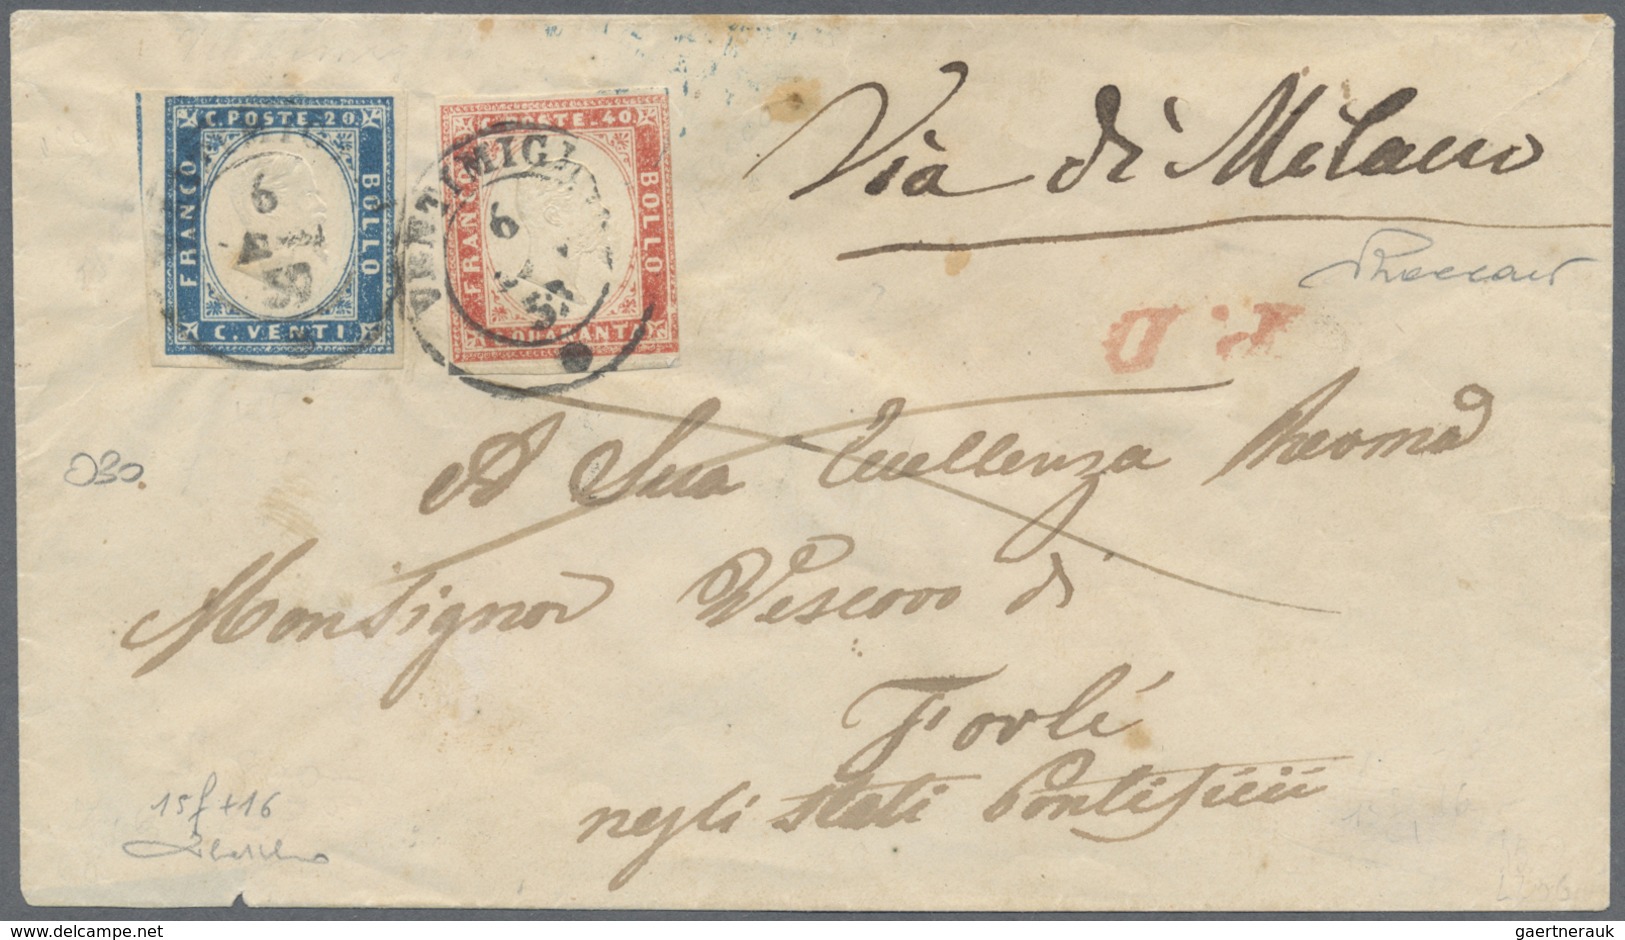 C. POSTE. 20
FRANCO
BOLLO
C. VENTI
C. POSTE. 40
FRANCO
BOLLO
QUARANTA
VENTIMIGLIA
6
59
6
59
Via di Milano
P. D.
A Sua Eccellenza Reverma
Monsignor Vescovo di
Forlí
negli stati Pontificii
030.
15f+16
www.delcampe.net
gaertnerauk